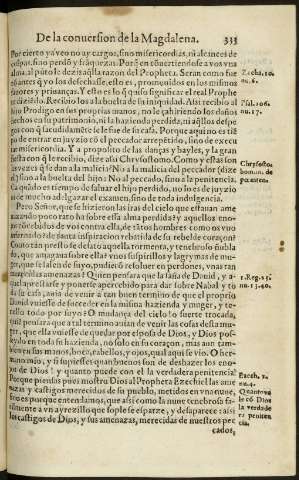 De la conuersion de la Magdalena. 333
Por cierto ya veo no ay cargos, sino misericordias, ni alcances de
culpas, sino perdõ y fráquezas. Porq̃ en conuertiendose a vos vna
alma, al pũto le dezis aq̃lla razon del Propheta. Seran como fue
rõ antes q̃ yo los desechasse, esto es, promouidos en los mismos
fauores y priuanças. Y esto es lo q̃ quiso significar el real Prophe
ta diziẽdo. Recibio los a la buelta de su iniquidad. Assi recibio al
hijo Prodigo en sus propias manos, no le çahiriendo los daños
hechos en su patrimonio, ni la hazienda perdida, ni aq̃llos despe
gos con q̃ sacudidamẽte se le fue de su casa. Porque aqui no es tiẽ
po de entrar en juyzio cõ el peccador arrepẽtido, sino de exerci
tar misericordia. Y a proposito de las danças y bayles, y la gran
fiesta con q̃ le recibio, dize assi Chrysostomo. Como y estas son
las vezes q̃ se dan a la malicia? No a la malicia del peccador (dize
el) sino a la buelta del hijo: No al peccado, sino a la penitencia.
Ca quãdo es tiempo de saluar el hijo perdido, no lo es de juyzio
ni de mucho adelgazar el examen, sino de toda indulgencia.
Pero Señor, que se hizieron las iras del cielo que estauan ame
nazando poco rato ha sobre essa alma perdida? y aquellos eno-
jos cõcebidos de vos contra ella, de tãtos hombres como os vuo
infernado
Como tan presto se desato aquella tormenta, y teniendo su ñubla
do, que amagaua sobre ella? vnos suspirillos y lagrymas de mu-
ger, que se lascan de suyo, pudierõ resoluer en perdones, vnas tan
merecidas amenazas? Quien pensara que la saña de Dauid, y a-
quel aprestarse y ponerse apercibido para dar sobre Nabal y to
da su casa, auia de venir a tan buen termino de que el propria
Dauid viniesse de suceder en la misma hazienda y muger, y te-
nello todo por suyo? O mudança del cielo! o suerte trocada,
quiẽ pensara que a tal termino auian de venir las cosas desta mu-
ger, que ella viniesse de quedar por esposa de Dios, y Dios pos-
seydo en toda su hazienda, no solo en su coraçon, mas aun tam-
bien en sus manos, boca, cabellos, y ojos, qual aqui se vio. O her-
mano mio, y si supiesses quan buenos son de deshazer los eno-
jos de Dios! y quanto puede con el la verdadera penitencia!
Porque piensas pues mostro Dios al Propheta Ezechiel las ame
nazas y castigos merecidos de su pueblo, metidos en vna nuue,
sino es porque entendamos, que assi como la nuue tenebrosa fa-
cilmente a vn ayrezillo que sople se esparze, y desaparece: assi
los castigos de Dios, y sus amenazas, merecidas de nuestros pec
cados,
Zacha. 10.
nu. 6.
Psal. 106.
nu. 17.
Chrysosto.
homil. de
pœnitent.
1. Reg. 25.
nu. 13. 40.
Ezech. 1.
nu. 4.
Quanto va
le cõ Dios
la verdade
ra peniten
cia.